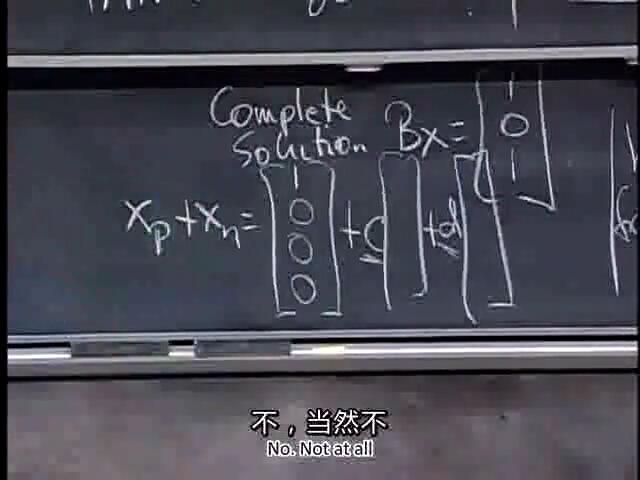 Complete
Solution Bx = [1 0 1]
x_p + x_n = [1 0 0 0] + c[ ] + d[ ]
不，当然不
No. Not at all